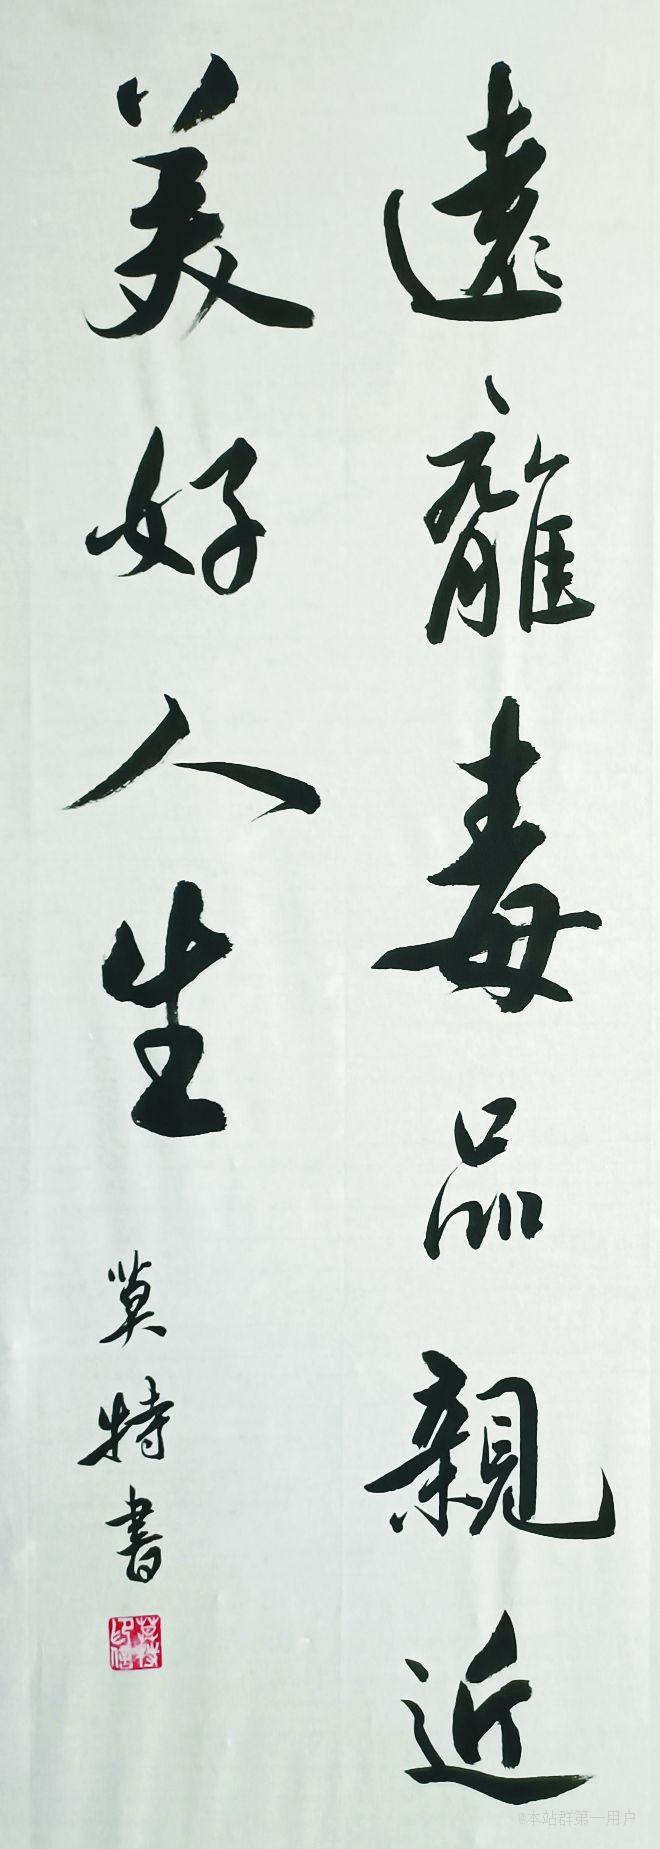 遠離毒品親近
美好人生
莫特書
莫特印信
@本站群第一用户